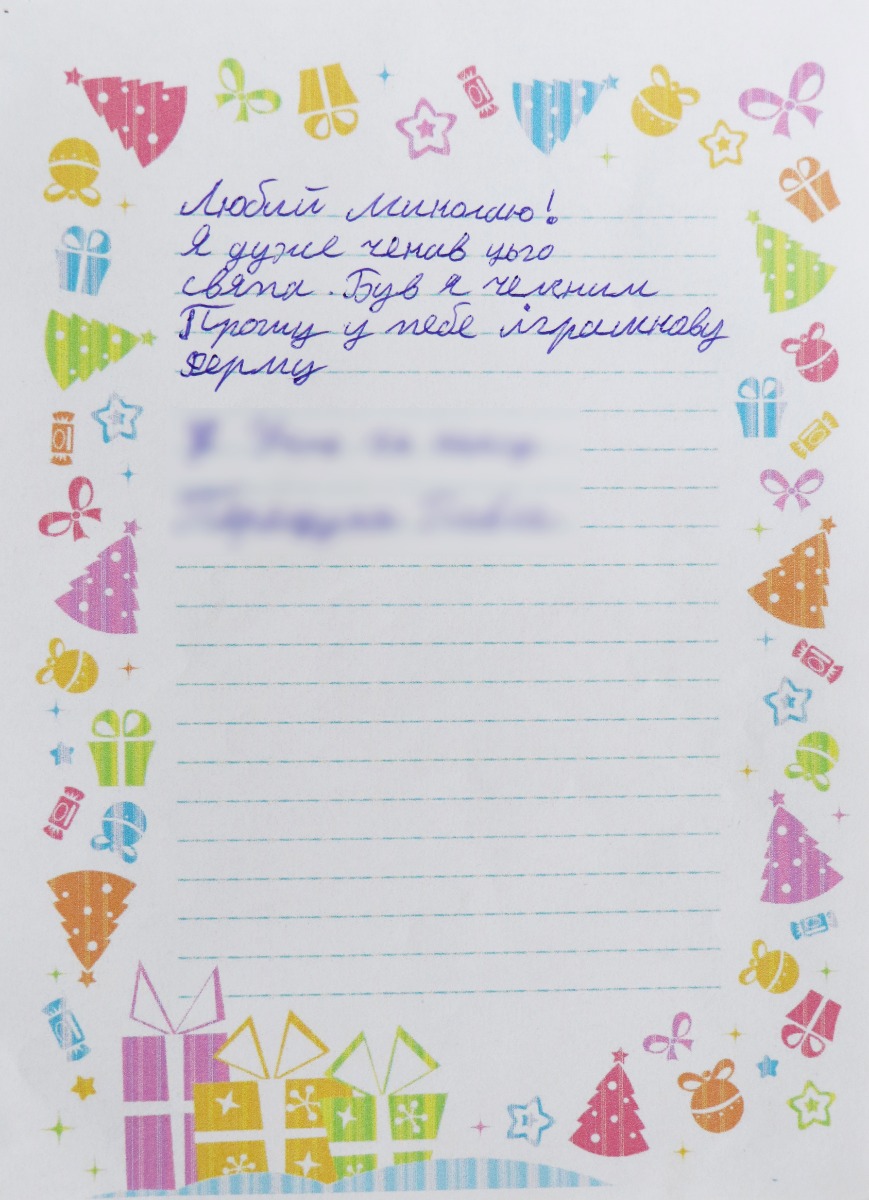 Любий Миколаю!
Я дуже чекав цього
свята. Був я чемним
Прошу у тебе іграшкову
ферму